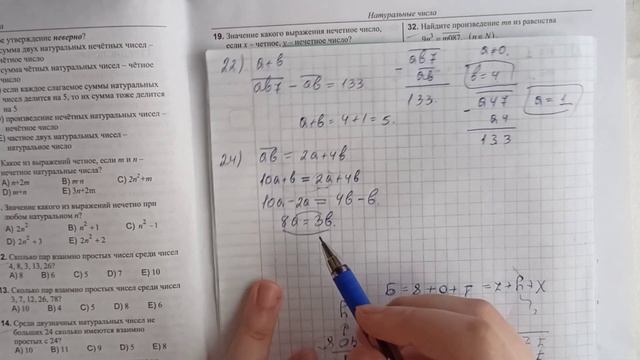 Натуральные числа
е утверждение неверно?
сумма двух натуральных нечётных чисел –
чётное число
сумма чётных натуральных чисел – чётное
число
если каждое слагаемое суммы натуральных
чисел делится на 5, то их сумма тоже делится
на 5
произведение нечётных натуральных чисел –
нечётное число
E) частное двух натуральных чисел –
натуральное число
Какое из выражений четное, если m и n –
нечетные натуральные числа?
A) n+2m B) m·n C) 2n²+m
D) m+n E) 3n+2m
Значение какого из выражений нечетно при
любом натуральном n?
A) 2n² B) n²+1 C) n²−1
D) 2n²+3 E) 2n²+2
Сколько пар взаимно простых чисел среди чисел
4, 8, 3, 13, 26?
A) 8 B) 6 C) 5 D) 7 E) 10
13. Сколько пар взаимно простых чисел среди чисел
3, 7, 12, 26, 78?
A) 10 B) 4 C) 5 D) 8 E) 6
14. Среди двузначных натуральных чисел не
больших 24 сколько имеются взаимно
простых с 24?
A) 10 B) 11 C) 9 D) 5 E) 8
19. Значение какого выражения нечетное число,
если x – четное, y – нечетное число?
32. Найдите произведение mn из равенства
22) a+b
ab7 − ab = 133
a+b = 4+1 = 5.
ab7
ab
133.
a≠0.
b=4
a47
a4
133
a=1
24) ab = 2a+4b
10a+b = 2a+4b
10a−2a = 4b−b.
8a=3b.
x+y+z = 1+0+8 = 9